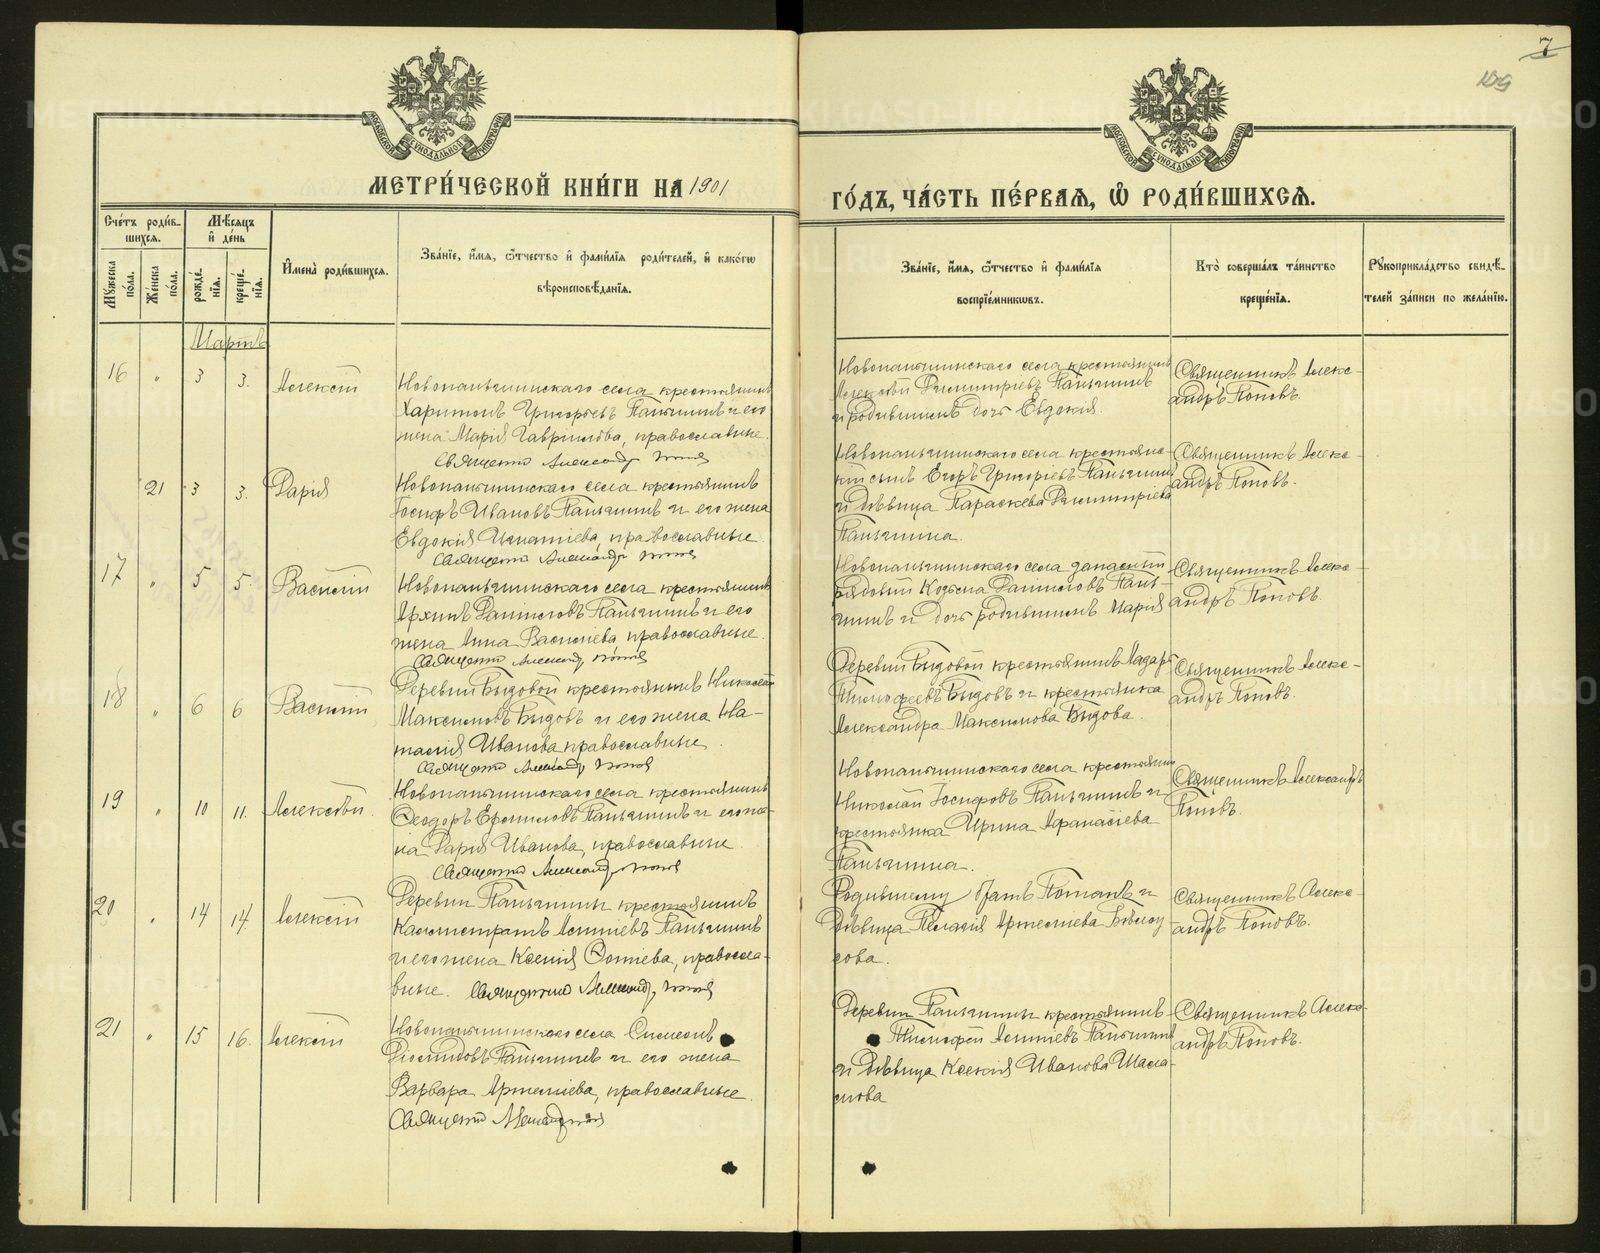 7
109
МОСКОВСКОЙ СѴНОДАЛЬНОЙ ТИПОГРАФІИ
МОСКОВСКОЙ СѴНОДАЛЬНОЙ ТИПОГРАФІИ
МЕТРИ́ЧЕСКОЙ КНИ́ГИ НА 1901
ГО́ДЪ, ЧА́СТЬ ПЕ́РВАѦ, Ѡ҆ РОДИ́ВШИХСѦ.
Сче́тъ роди́в-
шихсѧ.
Мѣ́сѧцъ
и҆ де́нь
Мꙋ́жеска по́ла.
Же́нска по́ла.
рожде́нїѧ.
креще́нїѧ.
И҆мена̀ роди́вшихсѧ.
Зва́нїе, и҆́мѧ, ѻ҆́тчество и҆ фами́лїѧ роди́телей, и҆ како́гѡ
вѣроисповѣ́данїѧ.
Зва́нїе, и҆́мѧ, ѻ҆́тчество и҆ фами́лїѧ
воспрїе́мникѡвъ.
Кто̀ соверша́лъ та́инство
креще́нїѧ.
Рꙋкоприкла́дство свидѣ́-
телей за́писи по жела́нїю.
Мартъ
16 " 3 3. Алексій
Новопаньшинскаго села крестьянинъ
Харитонъ Григорьевъ Паньшинъ и его
жена Марія Гаврилова, православные.
Священникъ Александръ Поповъ
Новопаньшинскаго села крестьянинъ
Алексѣй Димитріевъ Паньшинъ
и родившимъ дочь Евдокія.
Священникъ Алекс-
андръ Поповъ.
21 3 3. Дарія
Новопаньшинскаго села крестьянинъ
Іосифъ Ивановъ Паньшинъ и его жена
Евдокія Игнатіева, православные.
Священникъ Александръ Поповъ
Новопаньшинскаго села крестьянс-
кій сынъ Егоръ Григоріевъ Паньшинъ
и дѣвица Параскева Димитріева
Паньшина.
Священникъ Алекс-
андръ Поповъ.
17 " 5 5. Василій
Новопаньшинскаго села крестьянинъ
Архипъ Даниловъ Паньшинъ и его
жена Анна Василіева, православные.
Священникъ Александръ Поповъ
Новопаньшинскаго села запасный
рядовый Козьма Даниловъ Пань-
шинъ и дочь родившимъ Марія
Священникъ Алекс-
андръ Поповъ.
18 " 6 6 Василій
Деревни Быдовой крестьянинъ Николай
Максимовъ Быдовъ и его жена На-
талія Иванова православные.
Священникъ Александръ Поповъ
Деревни Быдовой крестьянинъ
Тимофеевъ Быдовъ и крестьянка
Александра Максимова Быдова.
Священникъ Алекс-
андръ Поповъ.
19 " 10 11. Алексѣй.
Новопаньшинскаго села крестьянинъ
Ѳеодоръ Ермиловъ Паньшинъ и его же-
на Дарія Иванова, православные.
Священникъ Александръ Поповъ
Новопаньшинскаго села крестьянинъ
Николай Іосифовъ Паньшинъ и
крестьянка Ирина Афанасіева
Паньшина.
Священникъ Александръ
Поповъ.
20 " 14 14. Алексій
Деревни Паньшины крестьянинъ
Каллистратъ Паньшинъ
и его жена Ксенія Фотіева, правосла-
вные. Священникъ Александръ Поповъ
Родившему братъ Потапъ и
дѣвица Пелагія Артеміева Бѣлоу-
сова.
Священникъ Алекс-
андръ Поповъ.
21 " 15 16. Алексій
Новопаньшинскаго села Симеонъ
Діомидовъ Паньшинъ и его жена
Варвара Артеміева, православные.
Священникъ Александръ Поповъ
Деревни Паньшины крестьянинъ
Тимофей Паньшинъ
и дѣвица Ксенія Иванова
Священникъ Алекс-
андръ Поповъ.
METRIKI.GASO-URAL.RU